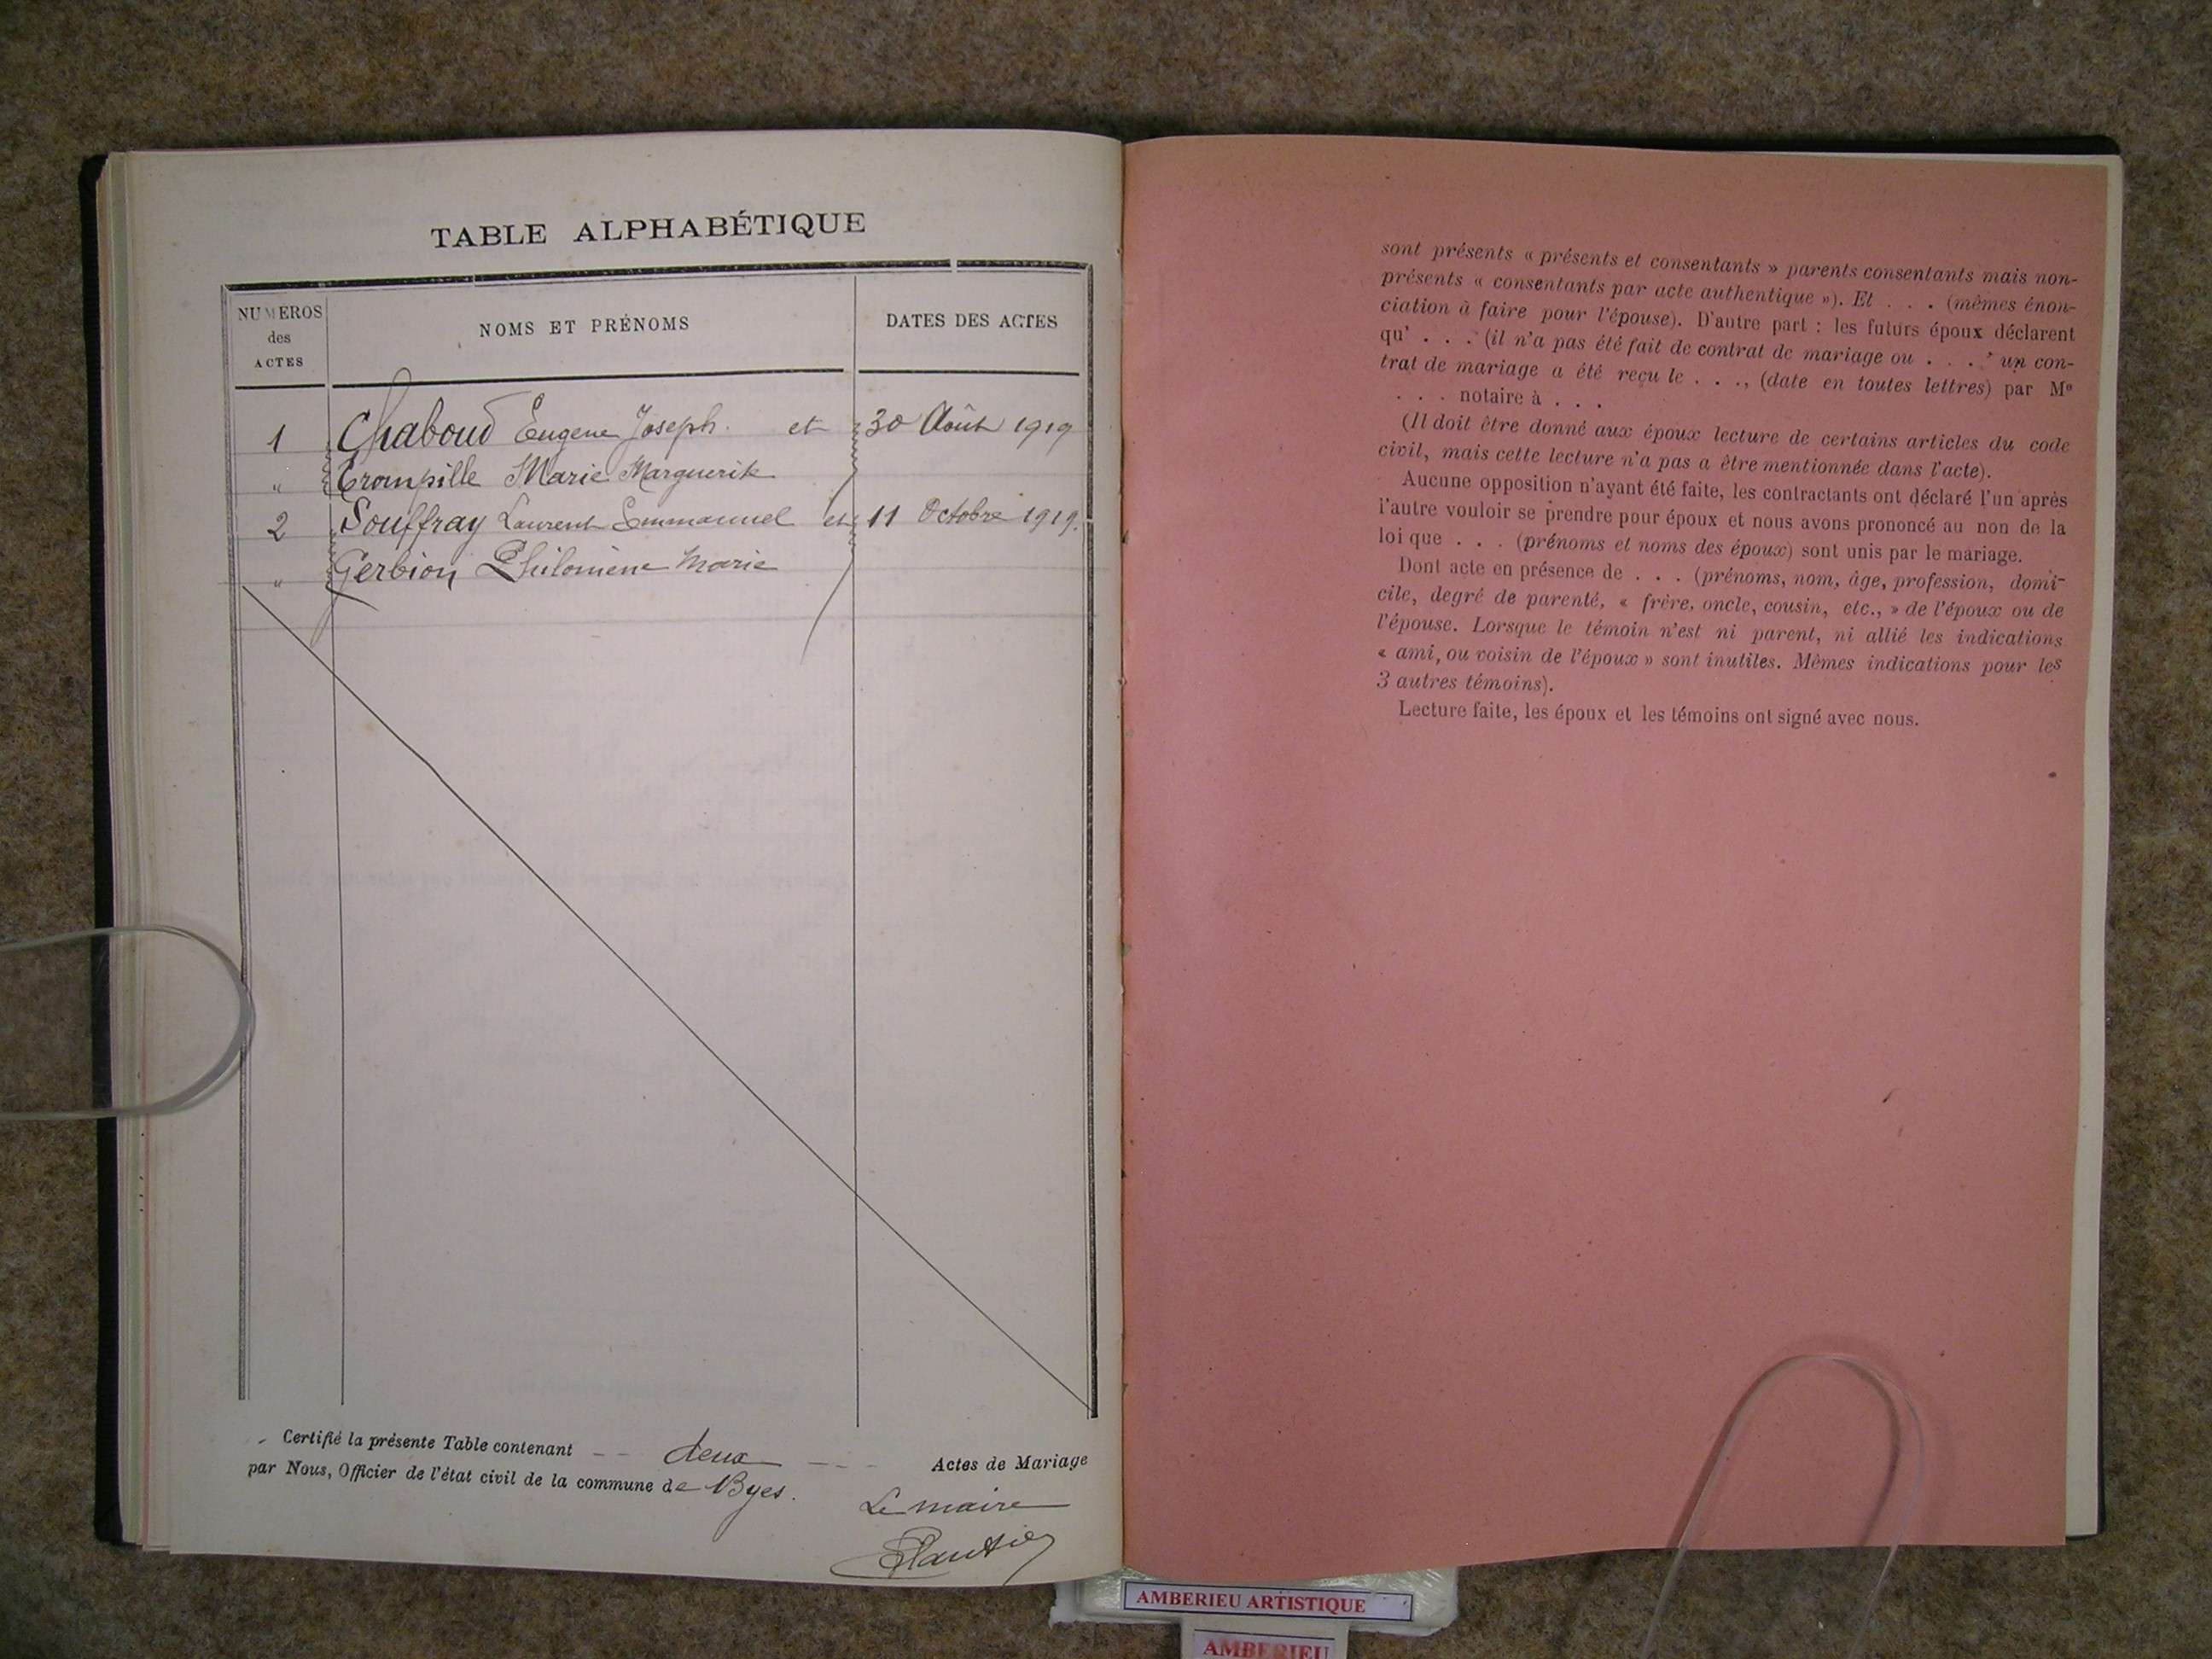 TABLE ALPHABÉTIQUE
NUMÉROS des ACTES
NOMS ET PRÉNOMS
DATES DES ACTES
1 Chaboud Eugène Joseph. et 30 Août 1919
" Trompille Marie Marguerite
2 Souffray Laurent Emmanuel et 11 Octobre 1919.
" Gerbion Philomène Marie
Certifié la présente Table contenant -- deux --- Actes de Mariage
par Nous, Officier de l'état civil de la commune de Byes.
Le maire
sont présents « présents et consentants » parents consentants mais non-
présents « consentants par acte authentique »). Et . . . (mêmes énon-
ciation à faire pour l'épouse). D'autre part : les futurs époux déclarent
qu' . . . (il n'a pas été fait de contrat de mariage ou . . . un con-
trat de mariage a été reçu le . . ., (date en toutes lettres) par Me
. . . notaire à . . .
(Il doit être donné aux époux lecture de certains articles du code
civil, mais cette lecture n'a pas a être mentionnée dans l'acte).
Aucune opposition n'ayant été faite, les contractants ont déclaré l'un après
l'autre vouloir se prendre pour époux et nous avons prononcé au non de la
loi que . . . (prénoms et noms des époux) sont unis par le mariage.
Dont acte en présence de . . . (prénoms, nom, âge, profession, domi-
cile, degré de parenté, « frère, oncle, cousin, etc., » de l'époux ou de
l'épouse. Lorsque le témoin n'est ni parent, ni allié les indications
« ami, ou voisin de l'époux » sont inutiles. Mêmes indications pour les
3 autres témoins).
Lecture faite, les époux et les témoins ont signé avec nous.
AMBERIEU ARTISTIQUE
AMBERIEU